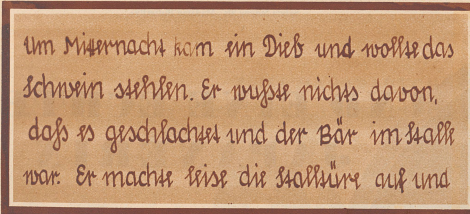 Um Mitternacht kam ein Dieb und wollte das
Schwein stehlen. Er wußte nichts davon,
daß es geschlachtet und der Bär im Stalle
war. Er machte leise die Stalltüre auf und